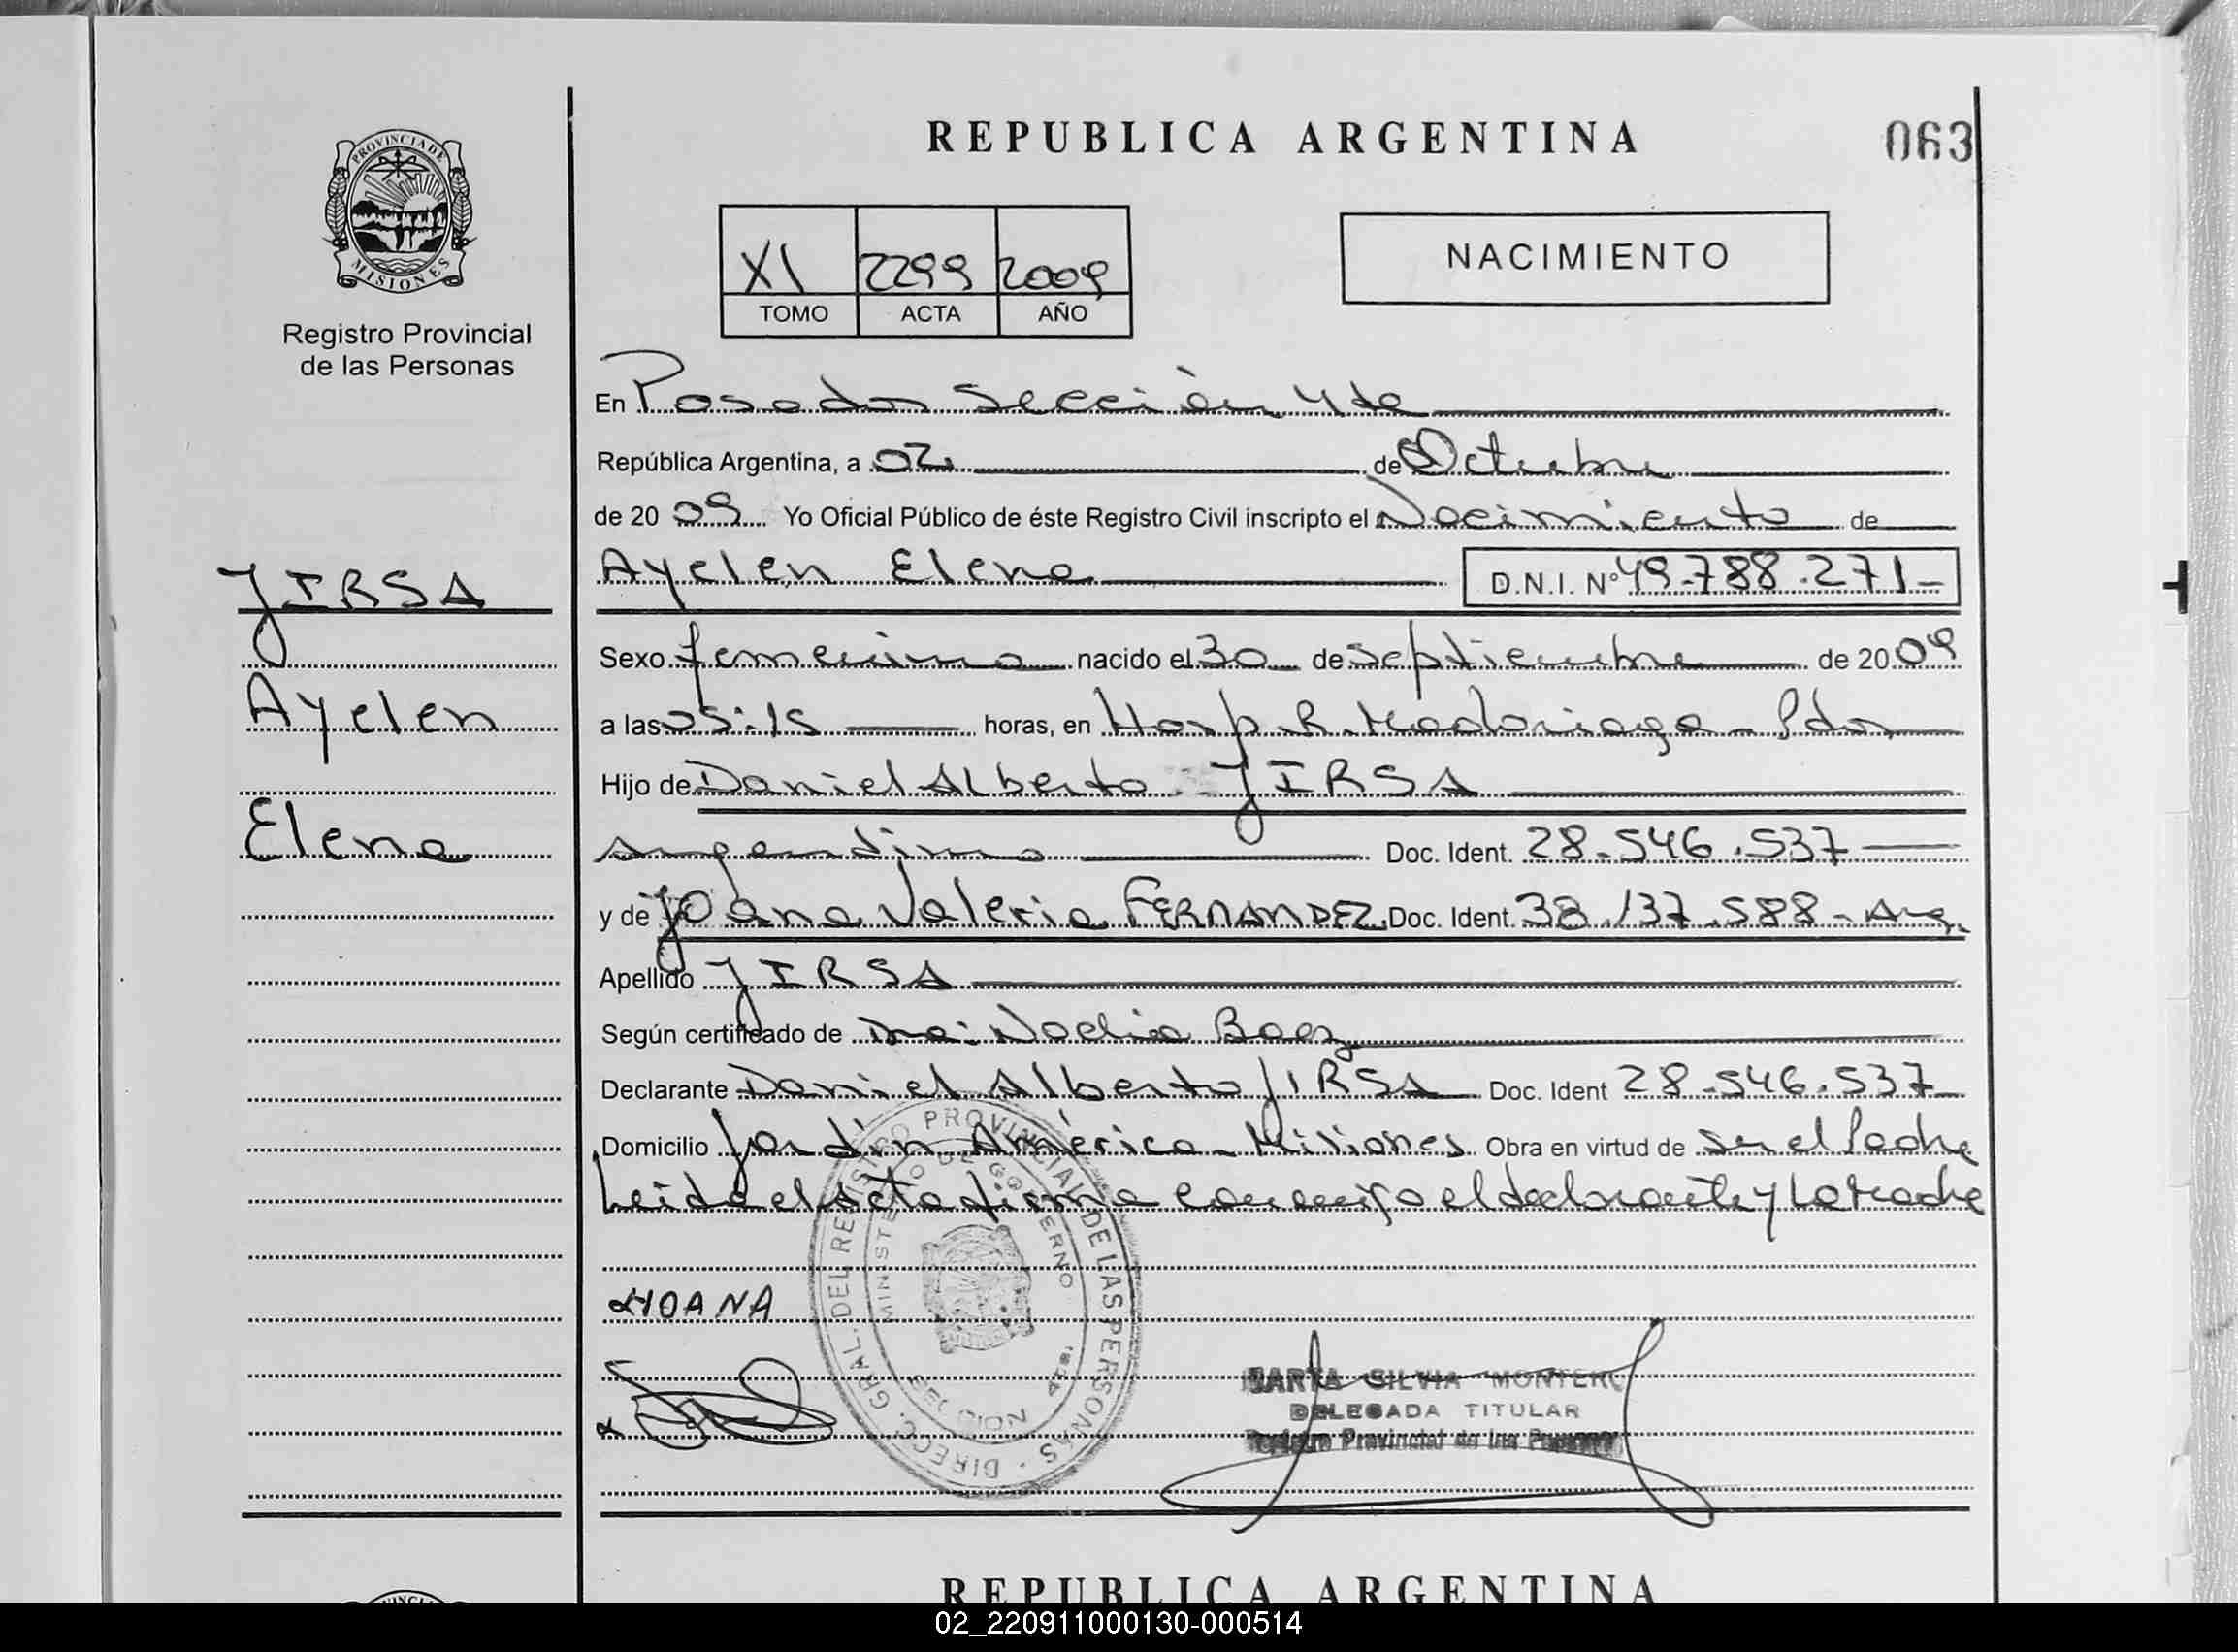 REPUBLICA ARGENTINA
063
PROVINCIA DE
MISIONES
Registro Provincial
de las Personas
XI 2299 2009
TOMO ACTA AÑO
NACIMIENTO
En Posadas Sección 4ta
República Argentina, a 02 de Octubre
de 20 09 Yo Oficial Público de éste Registro Civil inscripto el Nacimiento de
Ayelen Elena D.N.I. N° 49.788.271-
JIRSA
Ayelen
Elena
Sexo femenino nacido el 30 de Septiembre de 20 09
a las 05:15 horas, en Hosp. R. Madariaga - Pdas
Hijo de Daniel Alberto JIRSA
argentino Doc. Ident. 28.546.537
y de Joana Valeria FERNANDEZ Doc. Ident. 38.137.588 - Arg.
Apellido JIRSA
Según certificado de Dra: Noelia Baez
Declarante Daniel Alberto JIRSA Doc. Ident 28.546.537
Domicilio Jardín América - Misiones Obra en virtud de Ser el Padre
Leida el Acta firma conmigo el declarante y La Madre
DIRECC. GRAL. DEL REGISTRO PROVINCIAL DE LAS PERSONAS
MINISTERIO DE GOBIERNO
MARTA SILVIA MONTERO
DELEGADA TITULAR
Registro Provincial de las Personas
REPUBLICA ARGENTINA
02_220911000130-000514